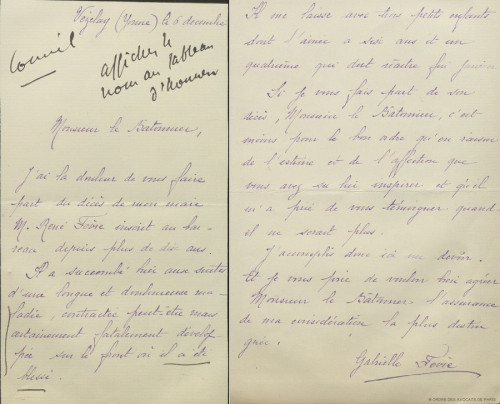 Vézelay (Yonne) le 6 décembre
Conseil
afficher le
nom au tableau
d'honneur
Monsieur le Bâtonnier,
J'ai la douleur de vous faire
part du décès de mon mari
M. René Fovie inscrit au bar-
reau depuis plus de dix ans.
Il a succombé hier aux suites
d'une longue et douloureuse ma-
ladie, contractée peut-être mais
certainement fatalement dévelop-
pée sur le front où il a été
blessé.
Il me laisse avec trois petits enfants
dont l'aînée a six ans et un
quatrième qui doit naître fin janvier
Si je vous fais part de son
décès, Monsieur le Bâtonnier, c'est
moins pour le bon ordre qu'en raison
de l'estime et de l'affection que
vous avez su lui inspirer et qu'il
m'a prié de vous témoigner quand
il ne serait plus.
J'accomplis donc ici un devoir.
Et je vous prie de vouloir bien agréer
Monsieur le Bâtonnier, l'assurance
de ma considération la plus distin-
guée.
Gabrielle Fovie
© ORDRE DES AVOCATS DE PARIS